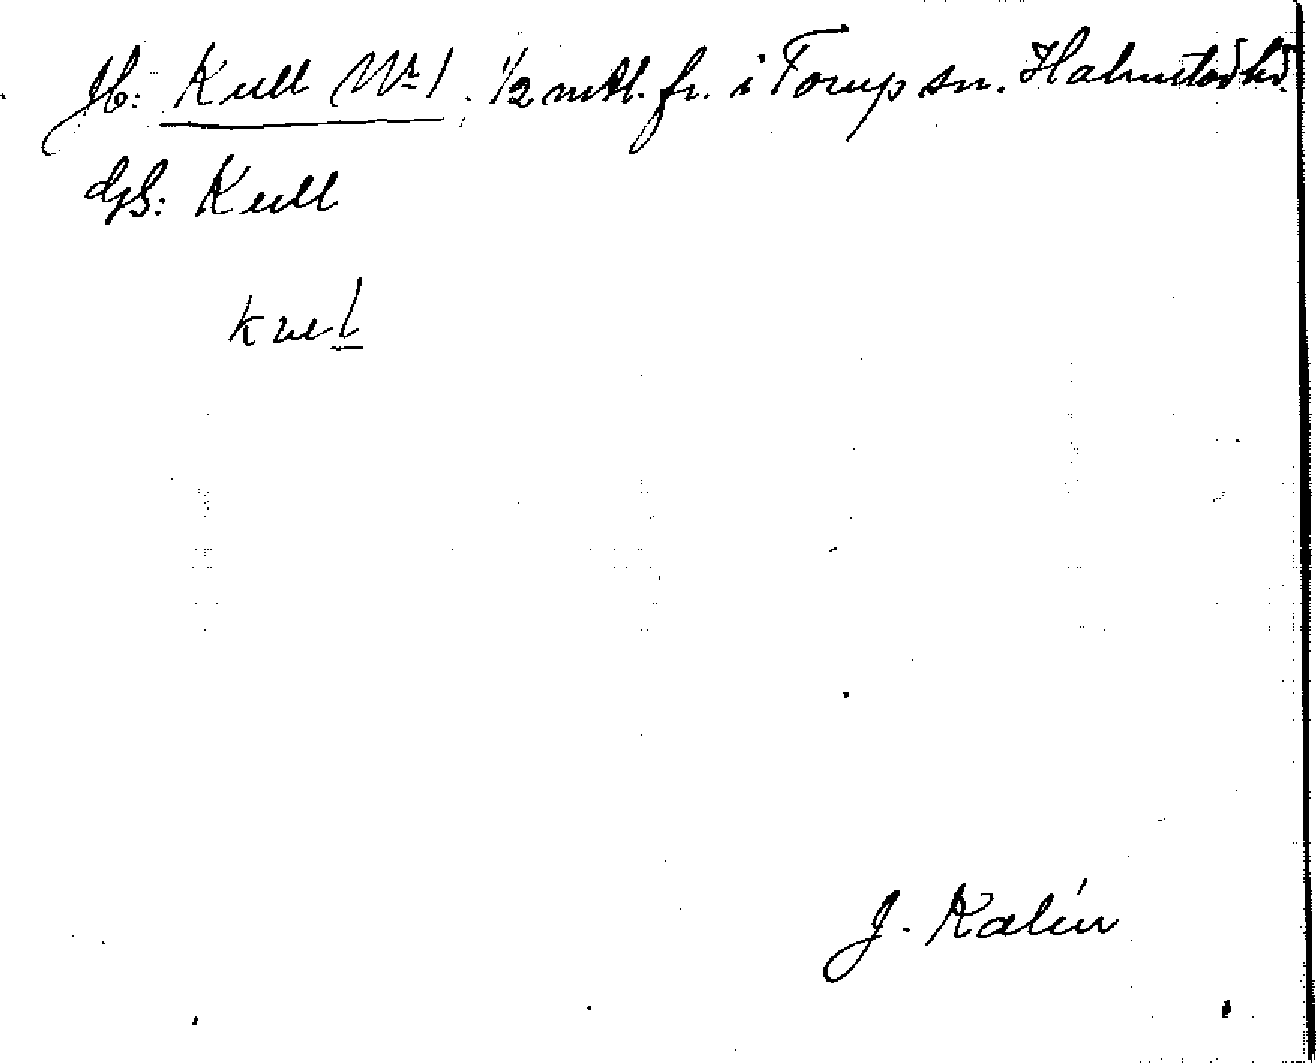 Jb: Kull Nr 1. 1/2 mtl. fr. i Torup sn. Halmstads hd.
GS: Kull
kul
J. Kalén